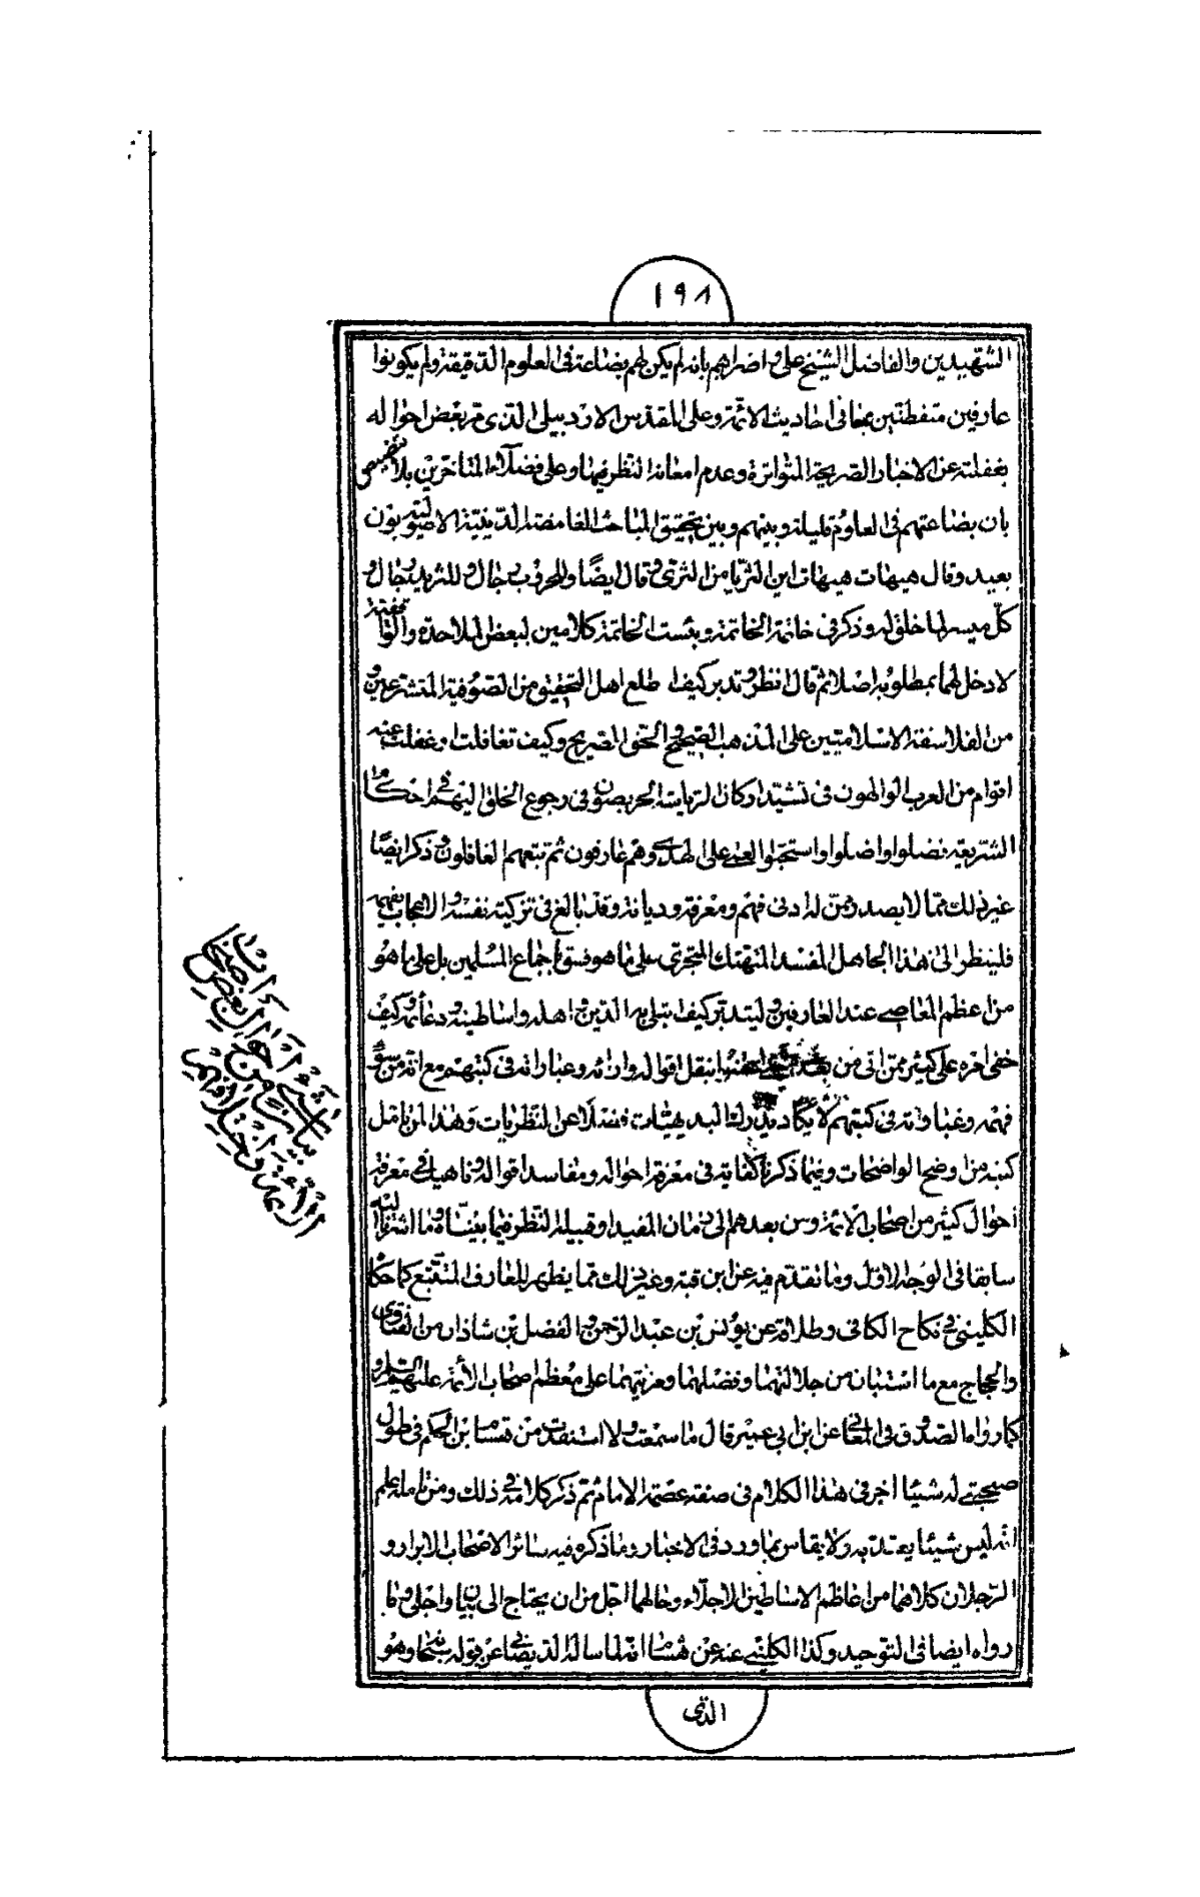 ١٩٨
الشهيدين والفاضل الشيخ على واضرابهم بانه لم يكن لهم بضاعة فى العلوم الدقيقة ولم يكونوا
عارفين متفطنين بمعانى احاديث الائمة وعلى المقدس الاردبيلى الذى مر بعض احواله
بغفلته عن الاخبار الصريحة المتواترة وعدم امعانه النظر فيها وعلى فضلاء المتاخرين بلا تخصيص
بان بضاعتهم فى العلوم قليلة وبينهم وبين تحقيق المباحث الغامضة الدينية الاصولية بون
بعيد وقال هيهات هيهات اين الثريا من الثرى وقال ايضًا وللحروب رجال وللثريد رجال و
كلّ ميسر لما خلق له وذكر فى خاتمة الخاتمة وبئست الخاتمة كلامين لبعض الملاحدة والفلاسفة
لا دخل لهما بمطلوبه اصلا ثم قال انظر وتدبر كيف اطلع اهل التحقيق من الصوفية المتشرعين و
من الفلاسفة الاسلاميين على المذهب الصحيح والحق الصريح وكيف تغافلت او غفلت عنه
اقوام من العرب الوالهون فى تشييد اركان الرياسة الحريصون فى رجوع الخلق اليهم فى احكام
الشريعة فضلوا واضلوا واستحبوا العمى على الهدى وهم عارفون ثم تبعهم الغافلون وذكر ايضًا
غير ذلك مما لا يصدر ممن له ادنى فهم ومعرفة وديانة وقد بالغ فى تزكية نفسه والاعجاب بفهمه
فلينظر الى هذا الجاهل المفسد المتهتك المتجرى على ما هو فسق باجماع المسلمين بل على ما هو
من اعظم المعاصى عند العارفين وليتدبر كيف ابتلى به الدين واهله واساطينه ودعائمه وكيف
خفى امره على كثير ممن اتى من بعده حتى اعتنوا بنقل اقواله وآرائه وعباراته فى كتبهم مع انه من سوء
فهمه وغباوته فى كتبهم لا يكاد يدرك البديهيات فضلًا عن النظريات وهذا لمن تامل
كتبه من اوضح الواضحات وفيما ذكرنا كفاية فى معرفة احواله ومفاسد اقواله وناهيك فى معرفة
احوال كثير من اصحاب الائمة ومن بعدهم الى زمان المفيد او قبيله النظر فيما بيناه وما اشرنا اليه
سابقا فى الوجه الاول وما تقدم فيه عن ابن قبه وغير ذلك مما يظهر للعارف المتتبع كما حكاه
الكلينى فى نكاح الكافى وطلاقه عن يونس بن عبد الرحمن والفضل بن شاذان من الفتاوى
والحجاج مع ما استبان من جلالتهما وفضلهما ومزيتهما على معظم اصحاب الأئمة عليهم السلم و
كما رواه الصدوق فى المعانى عن ابن ابى عمير قال ما سمعت ولا استفدت من هشام بن الحكم فى طول
صحبتى له شيئا احسن من هذا الكلام فى صفة عصمة الامام ثم ذكر كلامه فى ذلك ومن تامله علم
انه ليس شيئا يعتد به ولا يقاس بما ورد فى الاخبار وما ذكره فيه سائر الاصحاب الابرار و
الرجلان كلاهما من اعاظم الاساطين الاجلاء وحالهما اجلّ من ان يحتاج الى بيان واجلى وما
رواه ايضا فى التوحيد وكذا الكلينى عنه عن هشام انه لما ساله الديصانى عن قوله سبحانه وهو
الذى
احوال بعض اصحاب